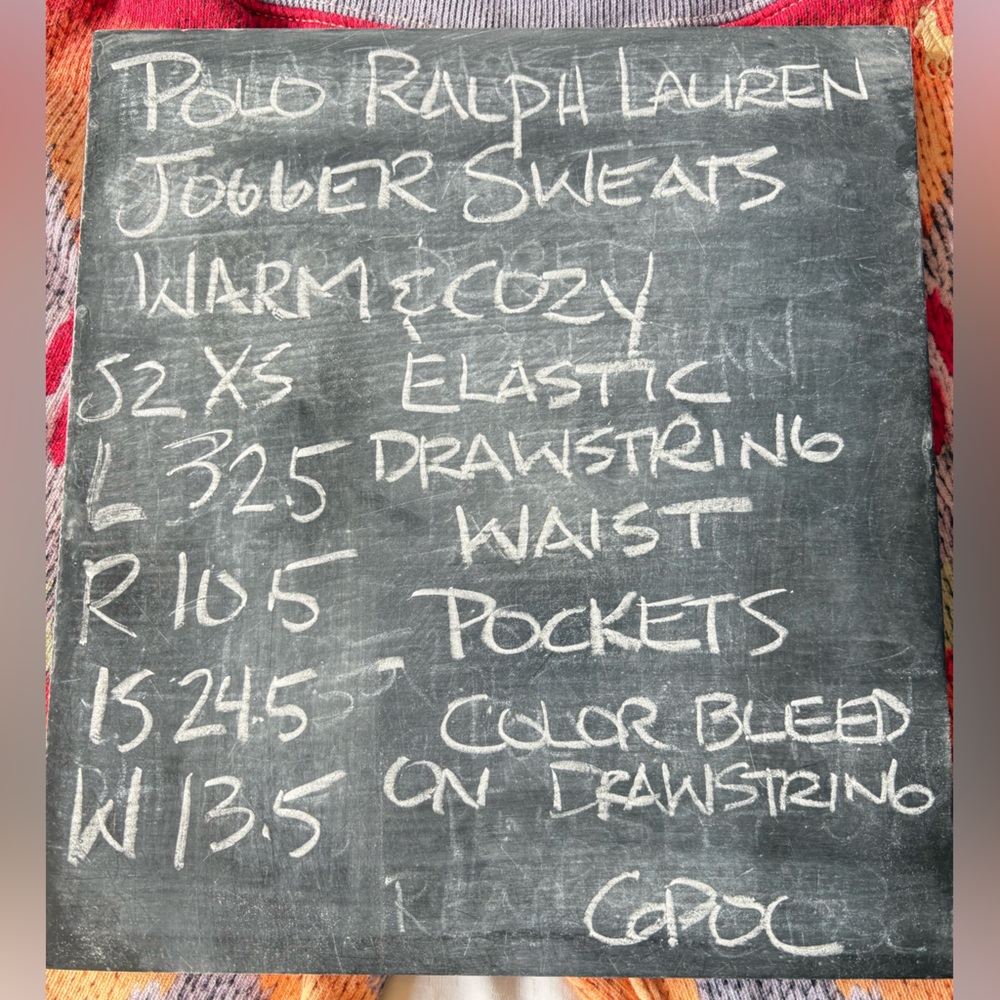 POLO RALPH LAUREN
JOGGER SWEATS
WARM & COZY
SZ XS ELASTIC
L 32.5 DRAWSTRING
WAIST
R 10.5 POCKETS
IS 24.5 COLOR BLEED
W 13.5 ON DRAWSTRING